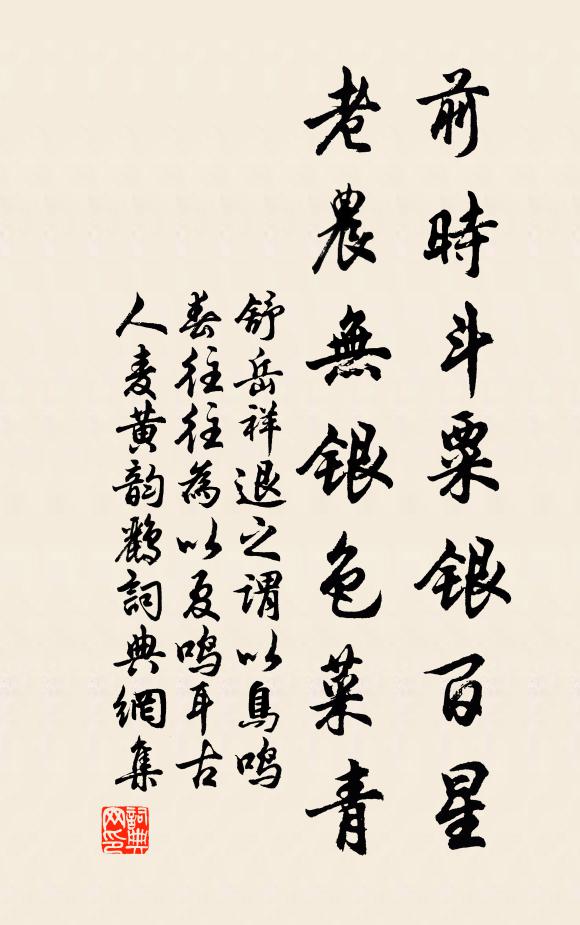 前時斗粟銀百星
老農無銀色菜青
舒岳祥退之謂以鳥鳴
春往往為以夏鳴耳古
人麦黄韵鸝詞典網集
詞典网印